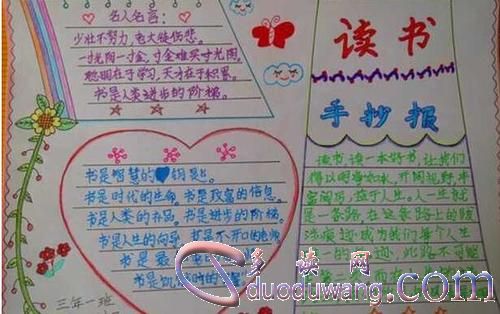 名人名言：
少壮不努力，老大徒伤悲。
一寸光阴一寸金，寸金难买寸光阴。
聪明在于学习，天才在于积累。
书是人类进步的阶梯。
读书
手抄报
书是智慧的钥匙。
书是时代的生命 书是致富的信息。
书是人类的 书是进步的阶梯。
书是人生的向导 书是不开口的老师
书是
书是饥饿时的
三年一班
读书，读一本好书，让我们
得以明净如水，开阔视野，丰
富阅历，益于人生。人一生就
是一条路，在这条路上的跋
涉痕迹成为我们每个人生
一的 迹，此路不可能
多读网
duoduwang.com